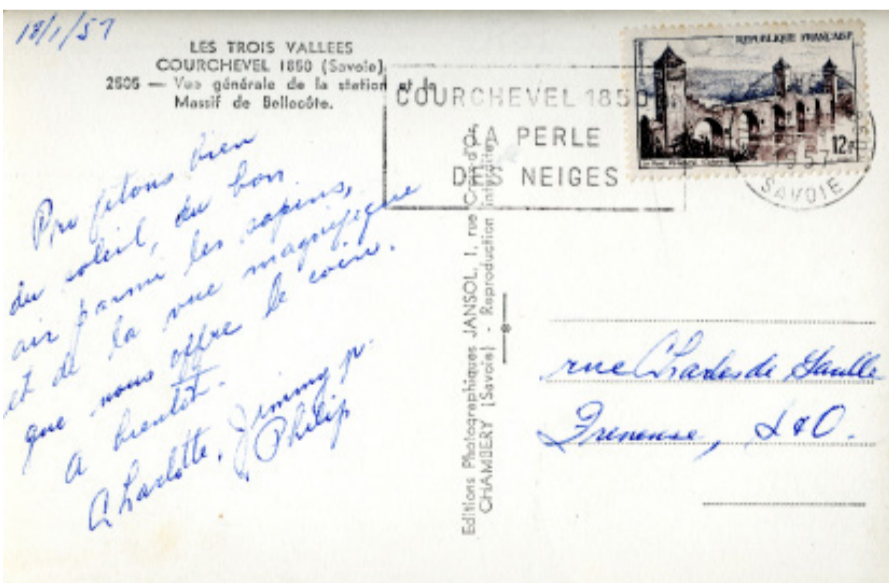 18/1/57
LES TROIS VALLEES
COURCHEVEL 1850 (Savoie)
2505 — Vue générale de la station et le
Massif de Bellecôte.
COURCHEVEL 1850
LA PERLE
DES NEIGES
REPUBLIQUE FRANÇAISE
12F
57
SAVOIE
Profitons bien
du soleil, du bon
air parmi les sapins,
et de la vue magnifique
que nous offre le coin.
A bientôt.
Charlotte, Jimmy
Philip
Editions Photographiques JANSOL, 1, rue Croix-d'Or,
CHAMBERY (Savoie) - Reproduction interdite
rue Charles de Gaulle
Freneuse, S&O.